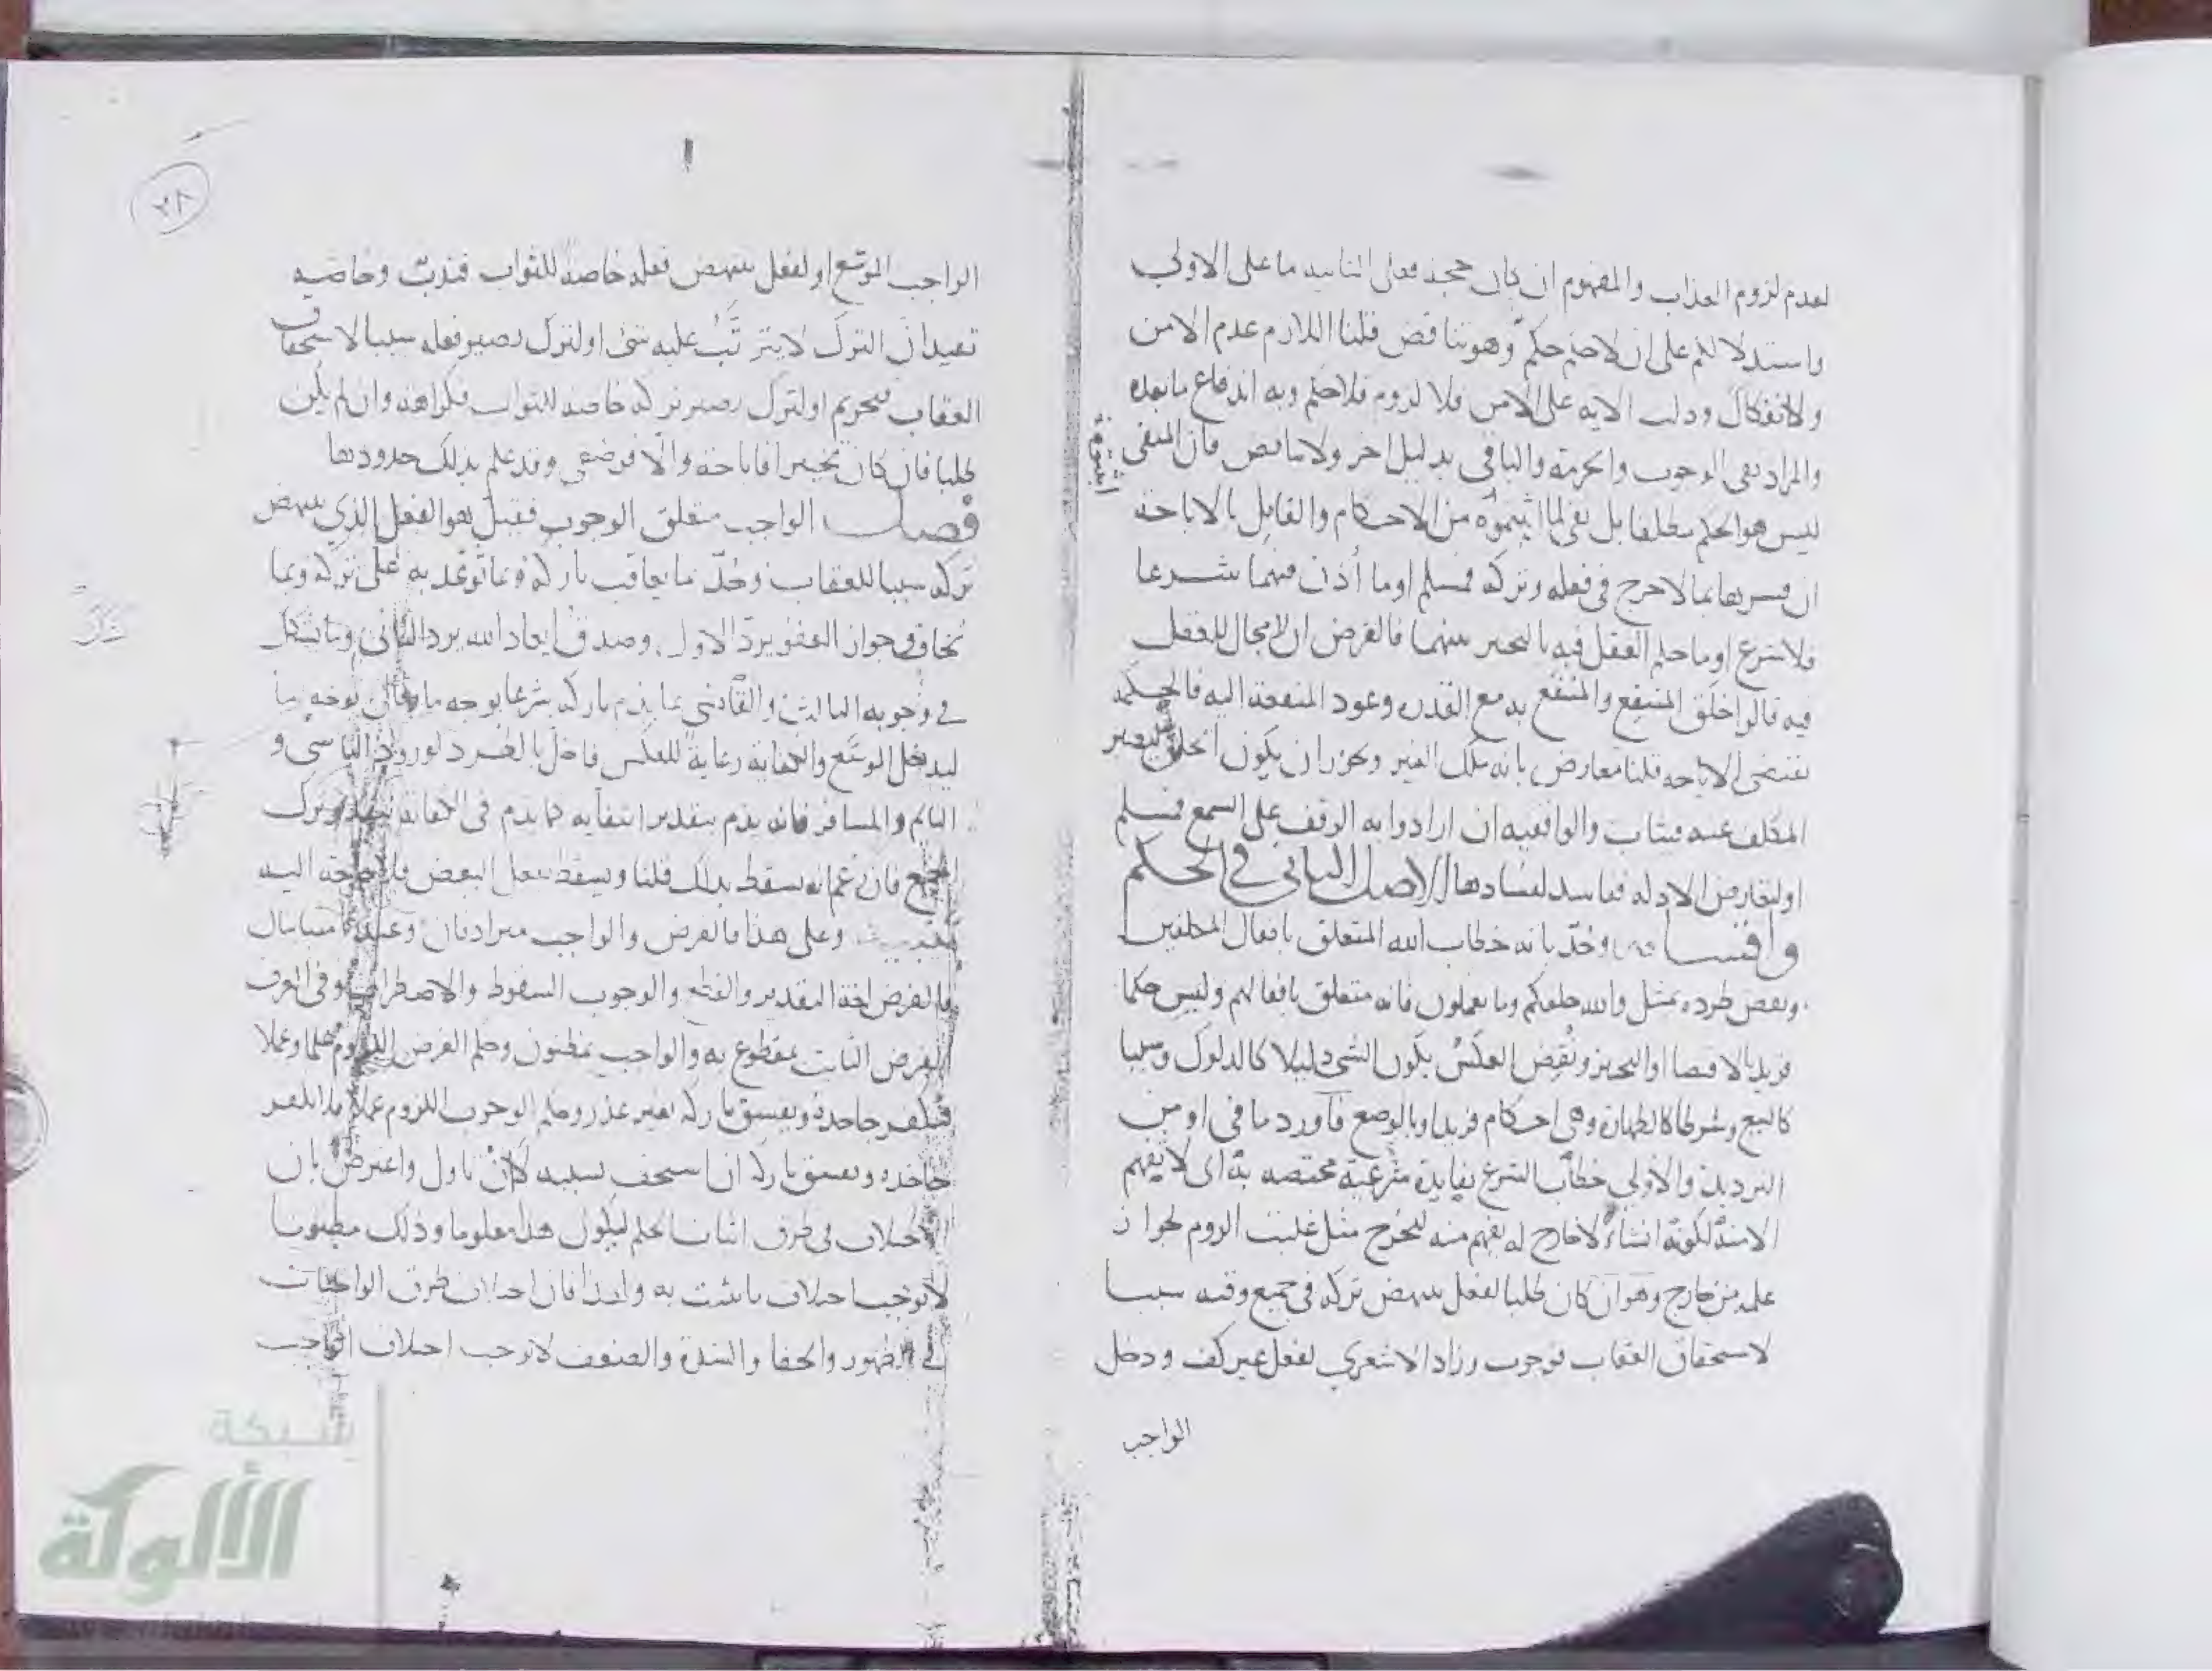 لعدم لزوم العذاب والمفهوم ان كان حجة فعلى التأسيه ما على الاولى
واستدلالكم على ان لا حكم حكم وهو تناقض قلنا اللازم عدم الامن
ولا انفكاك ودلت الآية على الامن فلا لزوم فلا حكم وبه اندفاع ما بعده
والمراد نفى الوجوب والحرمة والباقى بدليل اخر ولا تناقض فان المنفى
ليس هو الحكم مطلقا بل نفى لما اثبتموه من الاحكام والقايل بالاباحة
ان فسرها بما لا حرج فى فعله وتركه فمسلم او ما أذن فيهما شرعا
فلا شرع او ما حكم العقل فيه بالتخيير بينهما فالفرض ان لا مجال للعقل
فيه قالوا خلق المنتفع والمنتفع به مع القدرة وعود المنفعة اليه فالحكمة
تقتضى الاباحة قلنا معارض بانه ملك الغير ويجوز ان يكون الخلق ليصبر
المكلف عنه فيثاب والواقفية ان ارادوا به الوقف على السمع فمسلم
او لتعارض الادلة ففاسد لفسادها الاصل الثانى فى الحكم
واقسامه وحُدّ بانه خطاب الله المتعلق بافعال المكلفين
ونقض طرده بمثل والله خلقكم وما تعملون فانه متعلق بافعالهم وليس حكما
فزيد بالاقتضا او التخيير ونُقِض العكسُ بكون الشئ دليلا كالدلوك وسببا
كالبيع وشرطا كالطهارة وهى احكام فزيد او بالوضع فأورد ما فى او من
الترديد والأولى خطاب الشرع بفايدة شرعية مختصة به اى لا يفهم
الا منه لكونه انشاءً لا خارج له يفهم منه ليخرج مثل غلبت الروم لجواز
علمه من خارج وهو ان كان طلبا لفعل ينهض تركه فى جميع وقته سببا
لاستحقاق العقاب فوجوب وزاد الاشعرى لفعل غير كف ودخل
الواجب
اثبتموه
٢٨
الواجب الموسّع او لفعل ينهض فعله خاصة للثواب فندبٌ وخاصيه
تفيد ان الترك لا يترتب عليه شئ او لترك يصير فعله سببا لاستحقاق
العقاب فتحريم او لترك يصير تركه خاصة للثواب فكراهة وان لم يكن
طلبا فان كان تخييرا فاباحة والّا فوضعى وقد علم بذلك حدودها
فصل الواجب متعلق الوجوب فقيل هو الفعل الذى ينهض
تركه سببا للعقاب وحُدّ ما يعاقب تاركه وبما تُوُعّد به على تركه وبما
يخاف وجواز العفو يردّ الاول وصدق ايعاد الله يرد الثانى وما يشك
فى وجوبه الثالث والقاضى بما يذم تاركه شرعا بوجه ما وقال بوجه ما
ليدخل الموسّع والكفاية رعاية للعكس فاخلّ بالطرد لورود الناسى و
النائم والمسافر فانه يذم بتقدير انتفائه كما يذم فى الكفاية بتقدير ترك
الجميع فان زعم انه يسقط بذلك قلنا ويسقط بفعل البعض فلا حاجة اليه
وعلى هذا فالفرض والواجب مترادفان وعندنا متباينان
فالفرض لغة التقدير والقطع والوجوب السقوط والاضطراب وفى العرف
الفرض الثابت بمقطوع به والواجب بمظنون وحكم الفرض اللزوم علما وعملا
فنكفر جاحده ويفسق تاركه بغير عذر وحكم الوجوب اللزوم عملا فلا يكفر
جاحده ويفسق تاركه ان استخف بسببه لا ان تاول واعترض بان
الاختلاف فى طرق اثبات الحكم ليكون هذا معلوما وذلك مظنونا
لا يوجب اختلاف ما يثبت به ولهذا فان اختلاف طرق الواجبات
فى الظهور والخفا والشدة والضعف لا يوجب اختلاف الواجب
شبكة
الألوكة